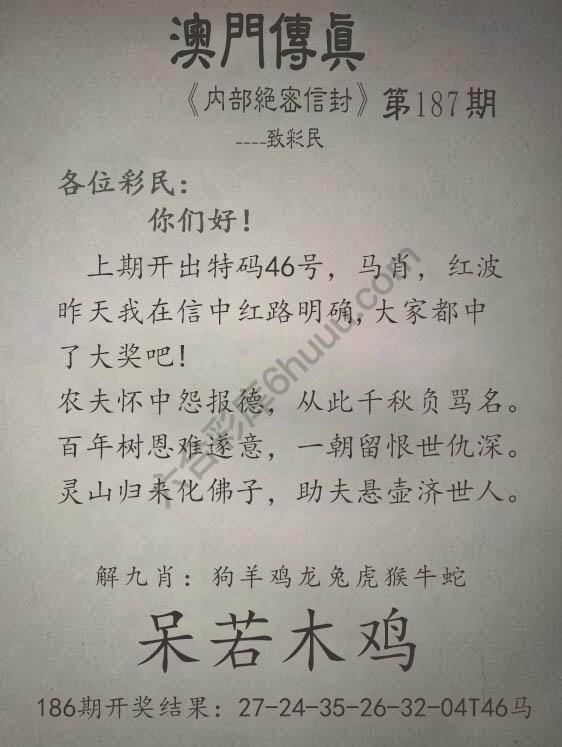 澳門傳真
《内部絕密信封》第187期
----致彩民
各位彩民：
你们好！
上期开出特码46号，马肖，红波
昨天我在信中红路明确,大家都中
了大奖吧！
农夫怀中怨报德，从此千秋负骂名。
百年树恩难遂意，一朝留恨世仇深。
灵山归来化佛子，助夫悬壶济世人。
解九肖：狗羊鸡龙兔虎猴牛蛇
呆若木鸡
186期开奖结果：27-24-35-26-32-04T46马
六合彩库6huuu.com